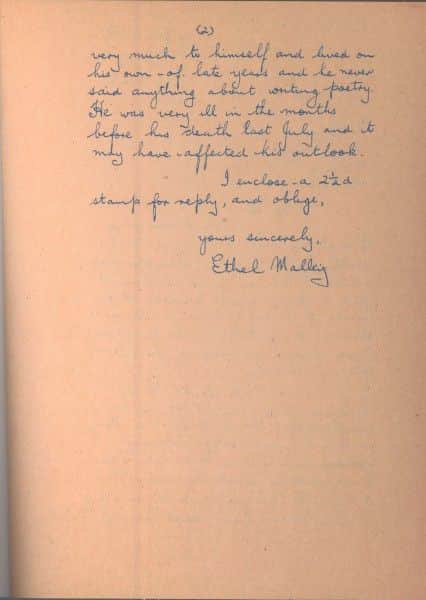 (2)
very much to himself and lived on
his own of late years and he never
said anything about writing poetry.
He was very ill in the months
before his death last July and it
may have affected his outlook.
I enclose a 2½d
stamp for reply, and oblige,
yours sincerely,
Ethel Malley